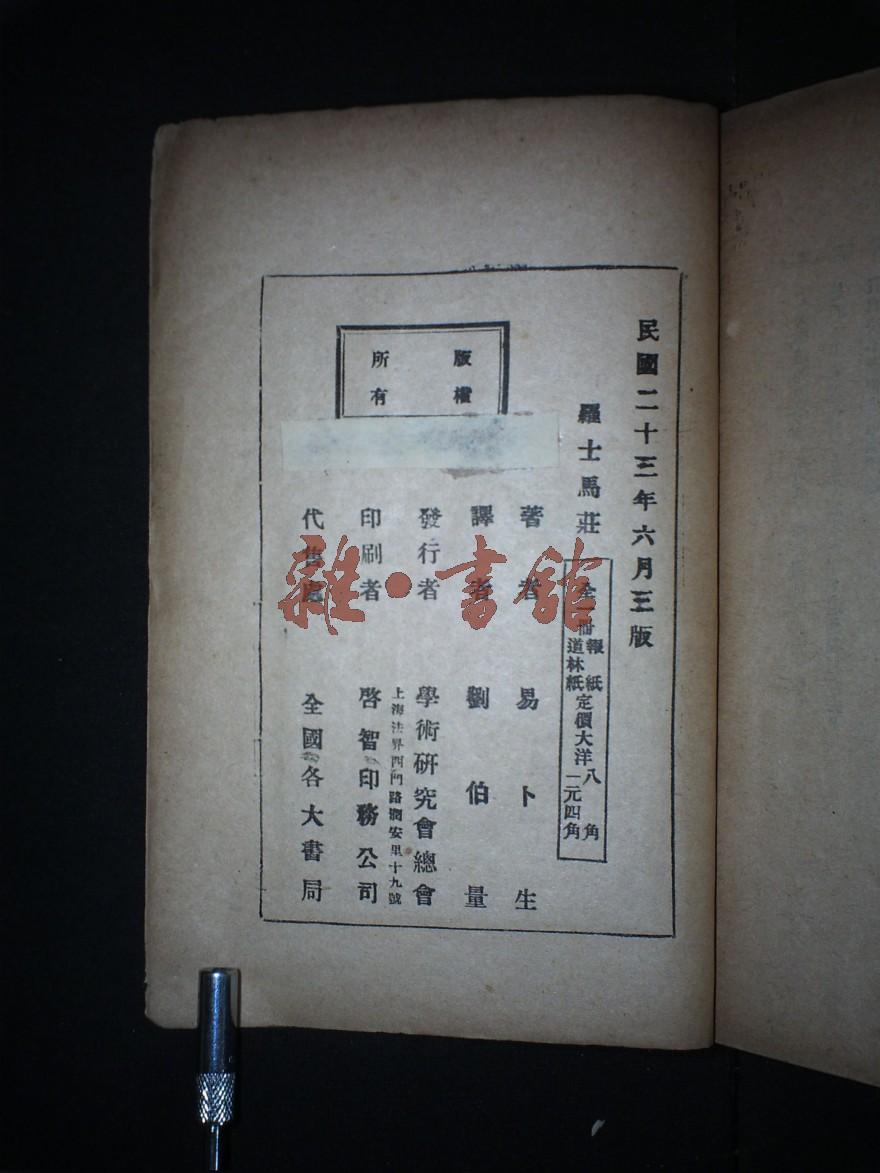 民國二十三年六月三版
羅士馬莊
全一冊
報紙
道林紙
定價大洋
八角
一元四角
版權
所有
著者 易卜生
譯者 劉伯量
發行者 學術研究會總會
上海法界西門路潤安里十九號
印刷者 啓智印務公司
代售處 全國各大書局
雜·書館